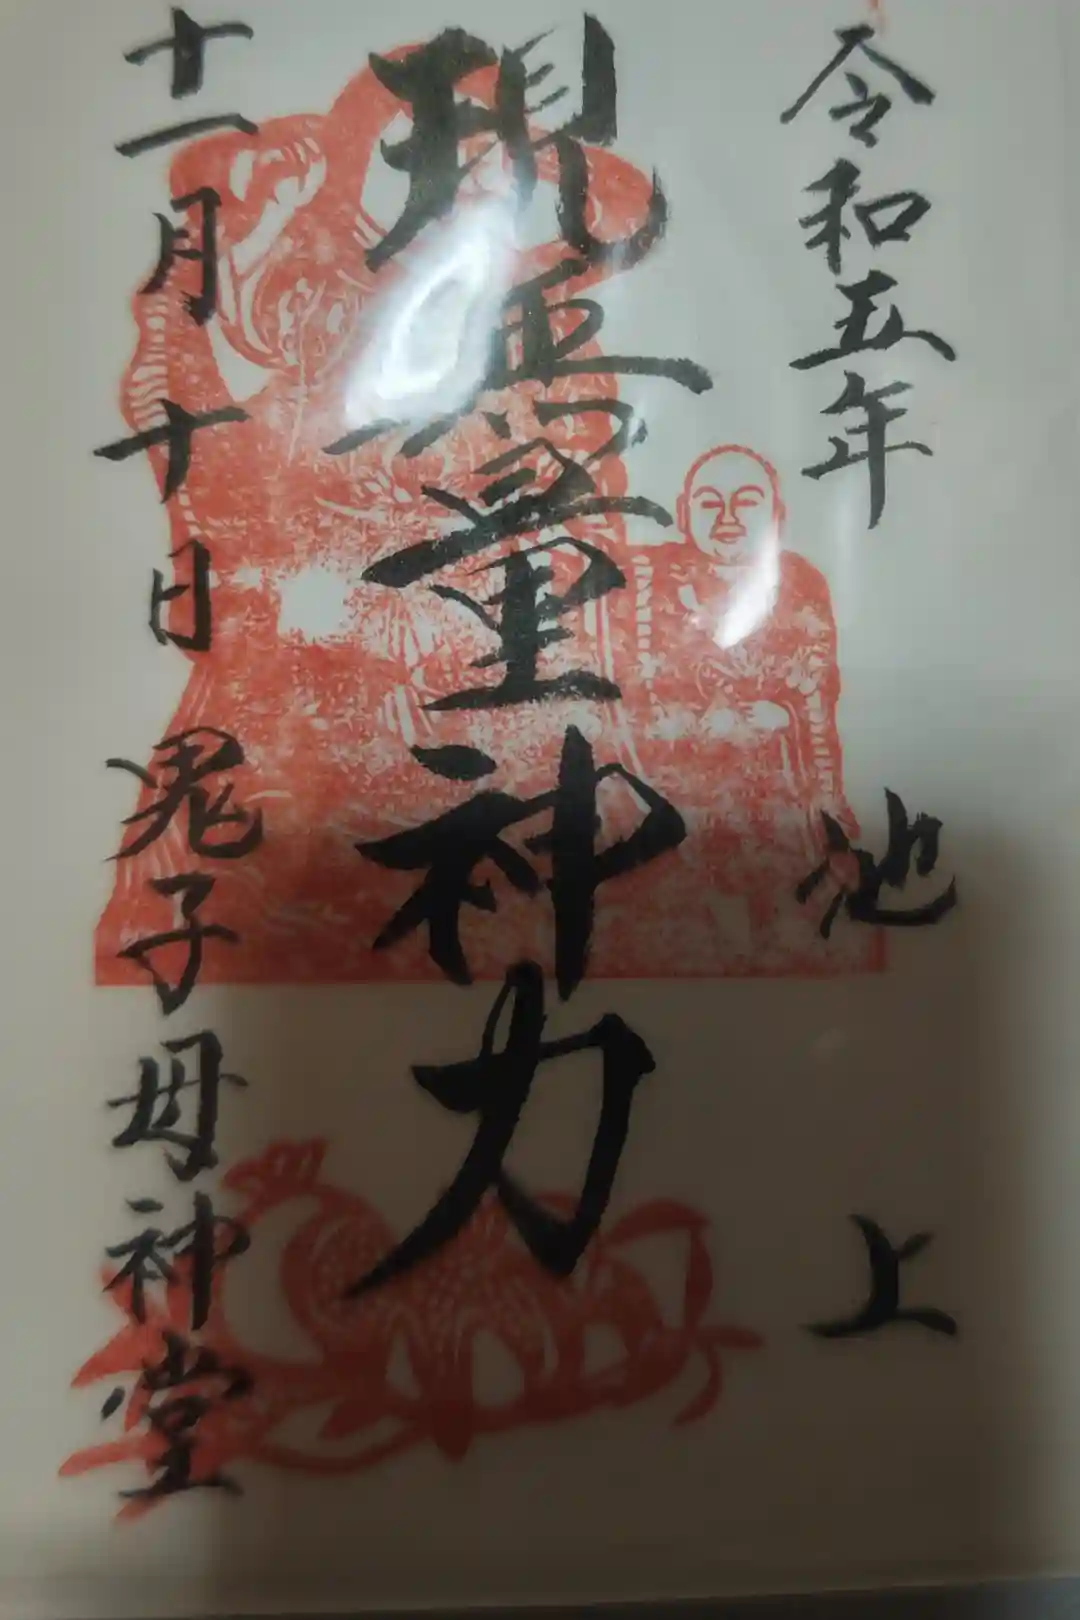 令和五年 池上
現無量神力
十一月十日 鬼子母神堂